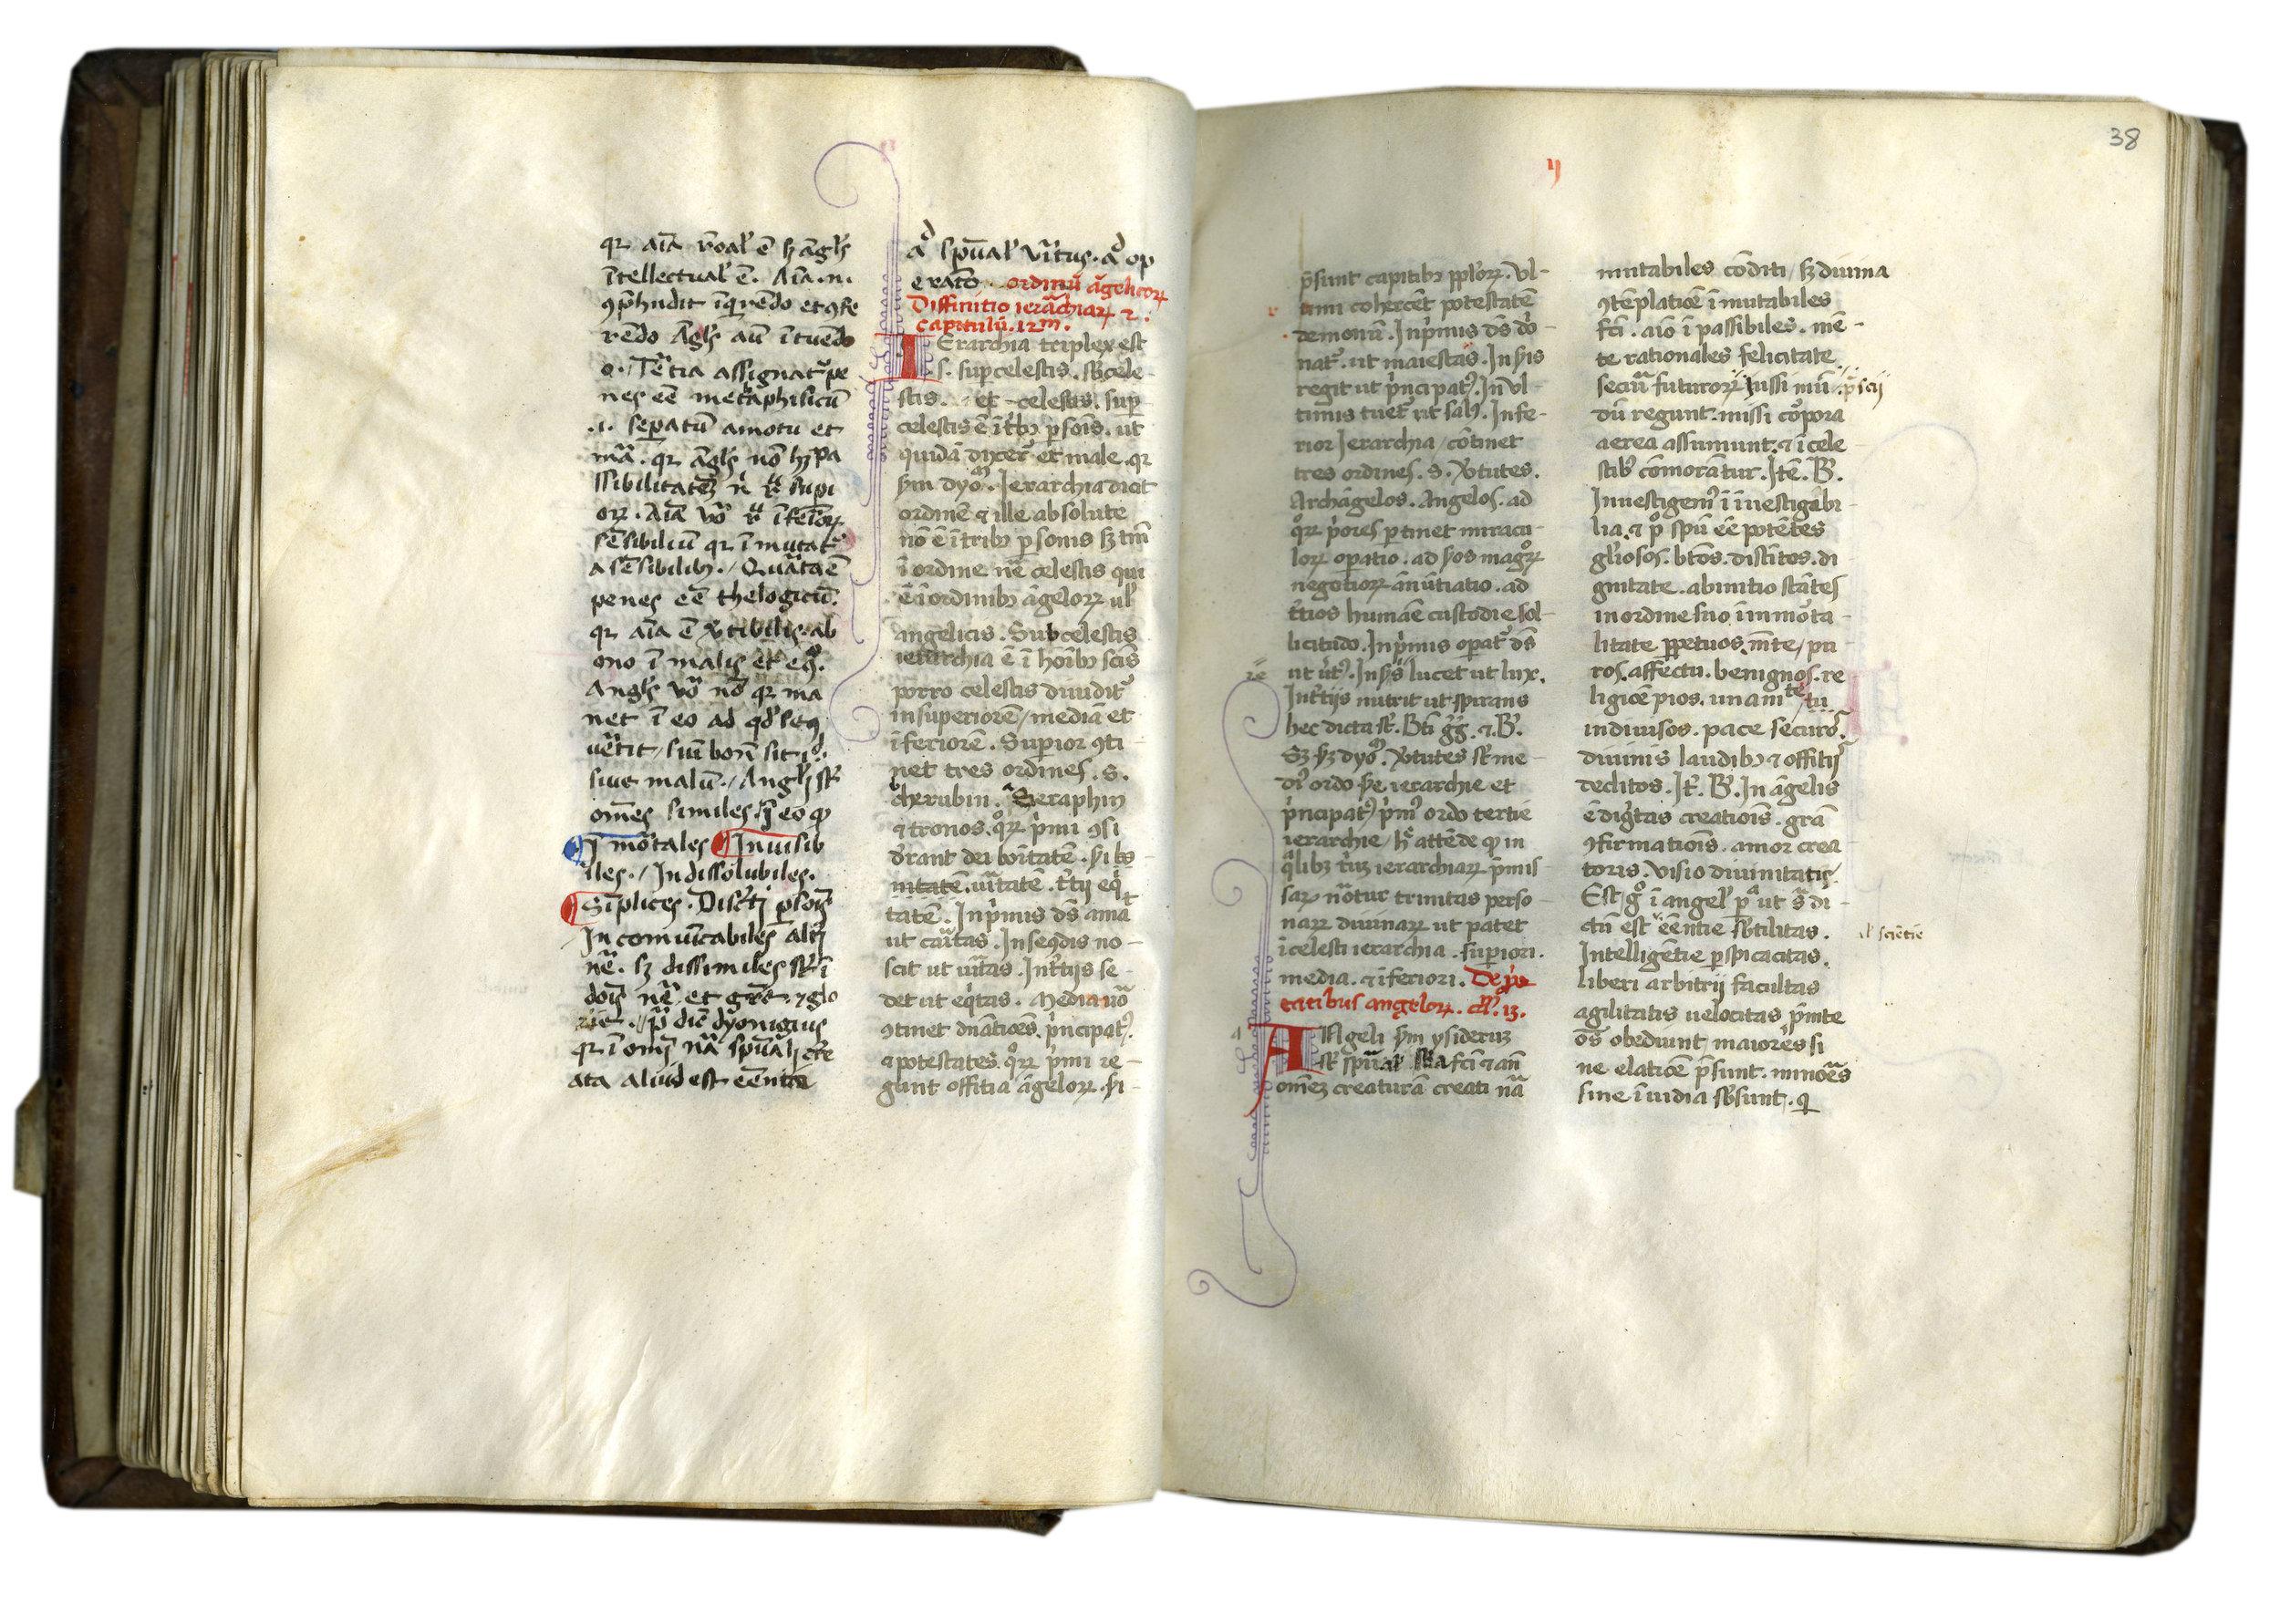 qꝛ aīa rōal' ē sꝫ āgl's
ītellectual' ē. Aīa .n.
ꝯp̄hndit īq̄rēdo et ꝯfe
rēdo Āgl's aūt ītuēdo
Tertia assignat᷑ pe
nes eē metaphisicū
.i. sepatū a motu et
mā. qꝛ āgl's nō hꝫ pa
ssibilitatē
oꝝ. Aīa vō īfeīoꝝ
sēsibiliū qꝛ īmutat᷑
a sēsibilibꝫ. Quārta ē
penes eē thelogicū.
qꝛ aīa ē v̄tibilis ab
ono ī malis et eꝯ̊.
Angl's vō nō qꝛ ma
net ī eo ad qd' seꝯ
uētit, siue bonū sit id
siue malū. Angl'i st̄
omēs similes ī eo qꝫ
Īmōtales Inuisib
iles. Indissolubiles.
Sīplices. Disc̄ti psoīs
Incomūicabiles alt'i
nē. sꝫ dissimiles st̄ ī
dois nē et gr̄e ⁊ glo
rie. p̄ dīc dyonigius
qꝛ ī omī nā spūali cre
ata aliud est eēntia
ad spūal' virtus. ad op
eratō. ordinū āgelicoꝝ
Diffinitio ierarchiaꝝ ⁊
capitulū .12m.
Ierarchia triplex est
s. supcelestis. sbcele-
stis. et celestis. sup
celestis ē ī tribꝫ psois. ut
quidā dixer̄t et male. qꝛ
sm dyo. Ierarchia dicit
ordinē ⁊ ille absolute
nō ē ī tribꝫ psonis sꝫ tm̄
ī ordine nē celestis que
ē ī ordinibꝫ āgeloꝝ ul'
angelicis. Subcelestis
ierarchia ē ī hoībꝫ scīs
porro celestis diuidit᷑
in superiorē, mediā et
īferiorē. Superior ꝯti-
net tres ordines. s.
cherubin. Seraphin
⁊ tronos. qoꝝ pīmi ꝯsi
dꝰant dei boītatē. sibo-
nitatē. uītatē. tītij eq
tatē. In pīmis dꝰs amat
ut caītas. In seqdis no-
scit ut uītas. In tītijs se-
det ut eqītas. Media uō
ꝯtinet dnātiōes. pīncipatꝰ.
⁊ potestates. qoꝝ pīmi re-
gunt offitia āgeloꝝ. si-
38
p̄sunt capitibꝫ ppl'oꝝ. Vl-
timi cohercēt potestatē
demonū. In pīmis dꝰs do-
nat᷑. ut maiestas. In sꝰis
regit ut pīncipatꝰ. In vl-
timis tuet᷑ ut salꝰ. Infe-
rior Ierarchia, cōtinet
tres ordines. s. v̄tutes.
Archāgelos. Angelos. ad
qoꝝ pīores ptinet miracu-
loꝝ opatio. ad sꝰos magoꝝ
negotioꝝ ānūtiatio. ad
tītios humāe custodie sol-
licitudo. In pīmis opat᷑ dꝰs
ut uītꝰ. In sꝰis lucet ut lux.
In tītijs nutrit ut spirans
hec dicta st̄. Bt̄i gḡ. ⁊. B'.
Sꝫ sm dyo. v̄tutes st̄ me-
diꝰ ordo sꝰe ierarchie et
pīncipatꝰ pīmꝰ ordo tertie
ierarchie, h̄ attēde qꝫ in
qlibꝫ tiū ierarchiaꝝ pīmis
saꝝ nātur trinitas perso-
narꝝ diuinarꝝ ut patet
ī celesti ierarchia. supiori.
media. ⁊ īferiori. De p'e-
tatibus angeloꝝ. c. 13.
Angeli sm ysiderum
st̄ spūal' fcī ⁊ an
omēz creaturā creati nā
mutabiles cōditi, sꝫ diuina
ꝯtēplatiōe īmutabiles
fcī. aīo īpassibiles. mē-
te rationales felicitate
secūi futuroꝝ p̄scij
iussi mū-
dū regunt. missi corpora
aerea assumunt. ⁊ ī cele
stibꝫ cōmorātur. Itē. B'.
Inuestigemꝰ īinuestigābi-
lia. ⁊ p spū eē potētes
gl'iosos. btos. distītos. di
gnitate. ab initio stātes
in ordine suo īmmōta-
litate ppetuos. mēte, pu
ros. affectu. benignos. re
ligiōe pios. unamte, tu
indiuisos. pace securos.
diuinis laudibꝫ ⁊ offitijs
deditos. It. B'. In āgelis
ē digītas creatiōis. grā
ꝯfirmatiōis. amor crea
toris. visio diuinitatis.
Est g̊ ī angel' p ut s̄ di-
ctū est eēntie sbtilitas.
ul' sciētie
Intelligētie pspicacitas.
liberi arbitrij facultas
agilitatis uelocitas pīnte
oēs obediunt maiores si
ne elatiōe p̄sunt. minoēs
sine īuidia sbsunt. q